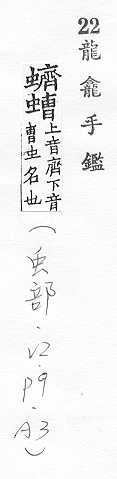 22龍龕手鑑
蠐螬上音齊下音
曹虫名也
(虫部.V2.P9.A3)